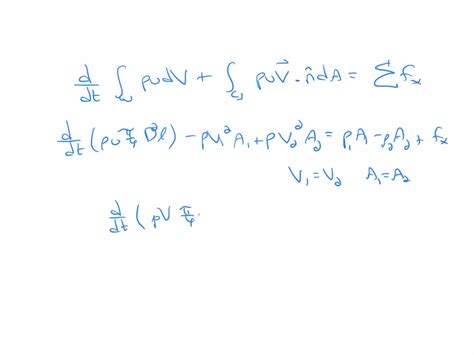 d/dt ∫_cv ρu dV + ∫_cs ρu V⃗ · n̂ dA = Σ f_x
d/dt (ρu π/4 D²l) − ρV₁²A₁ + ρV₂²A₂ = p₁A − p₂A₂ + f_x
V₁ = V₂  A₁ = A₂
d/dt (ρV π/4